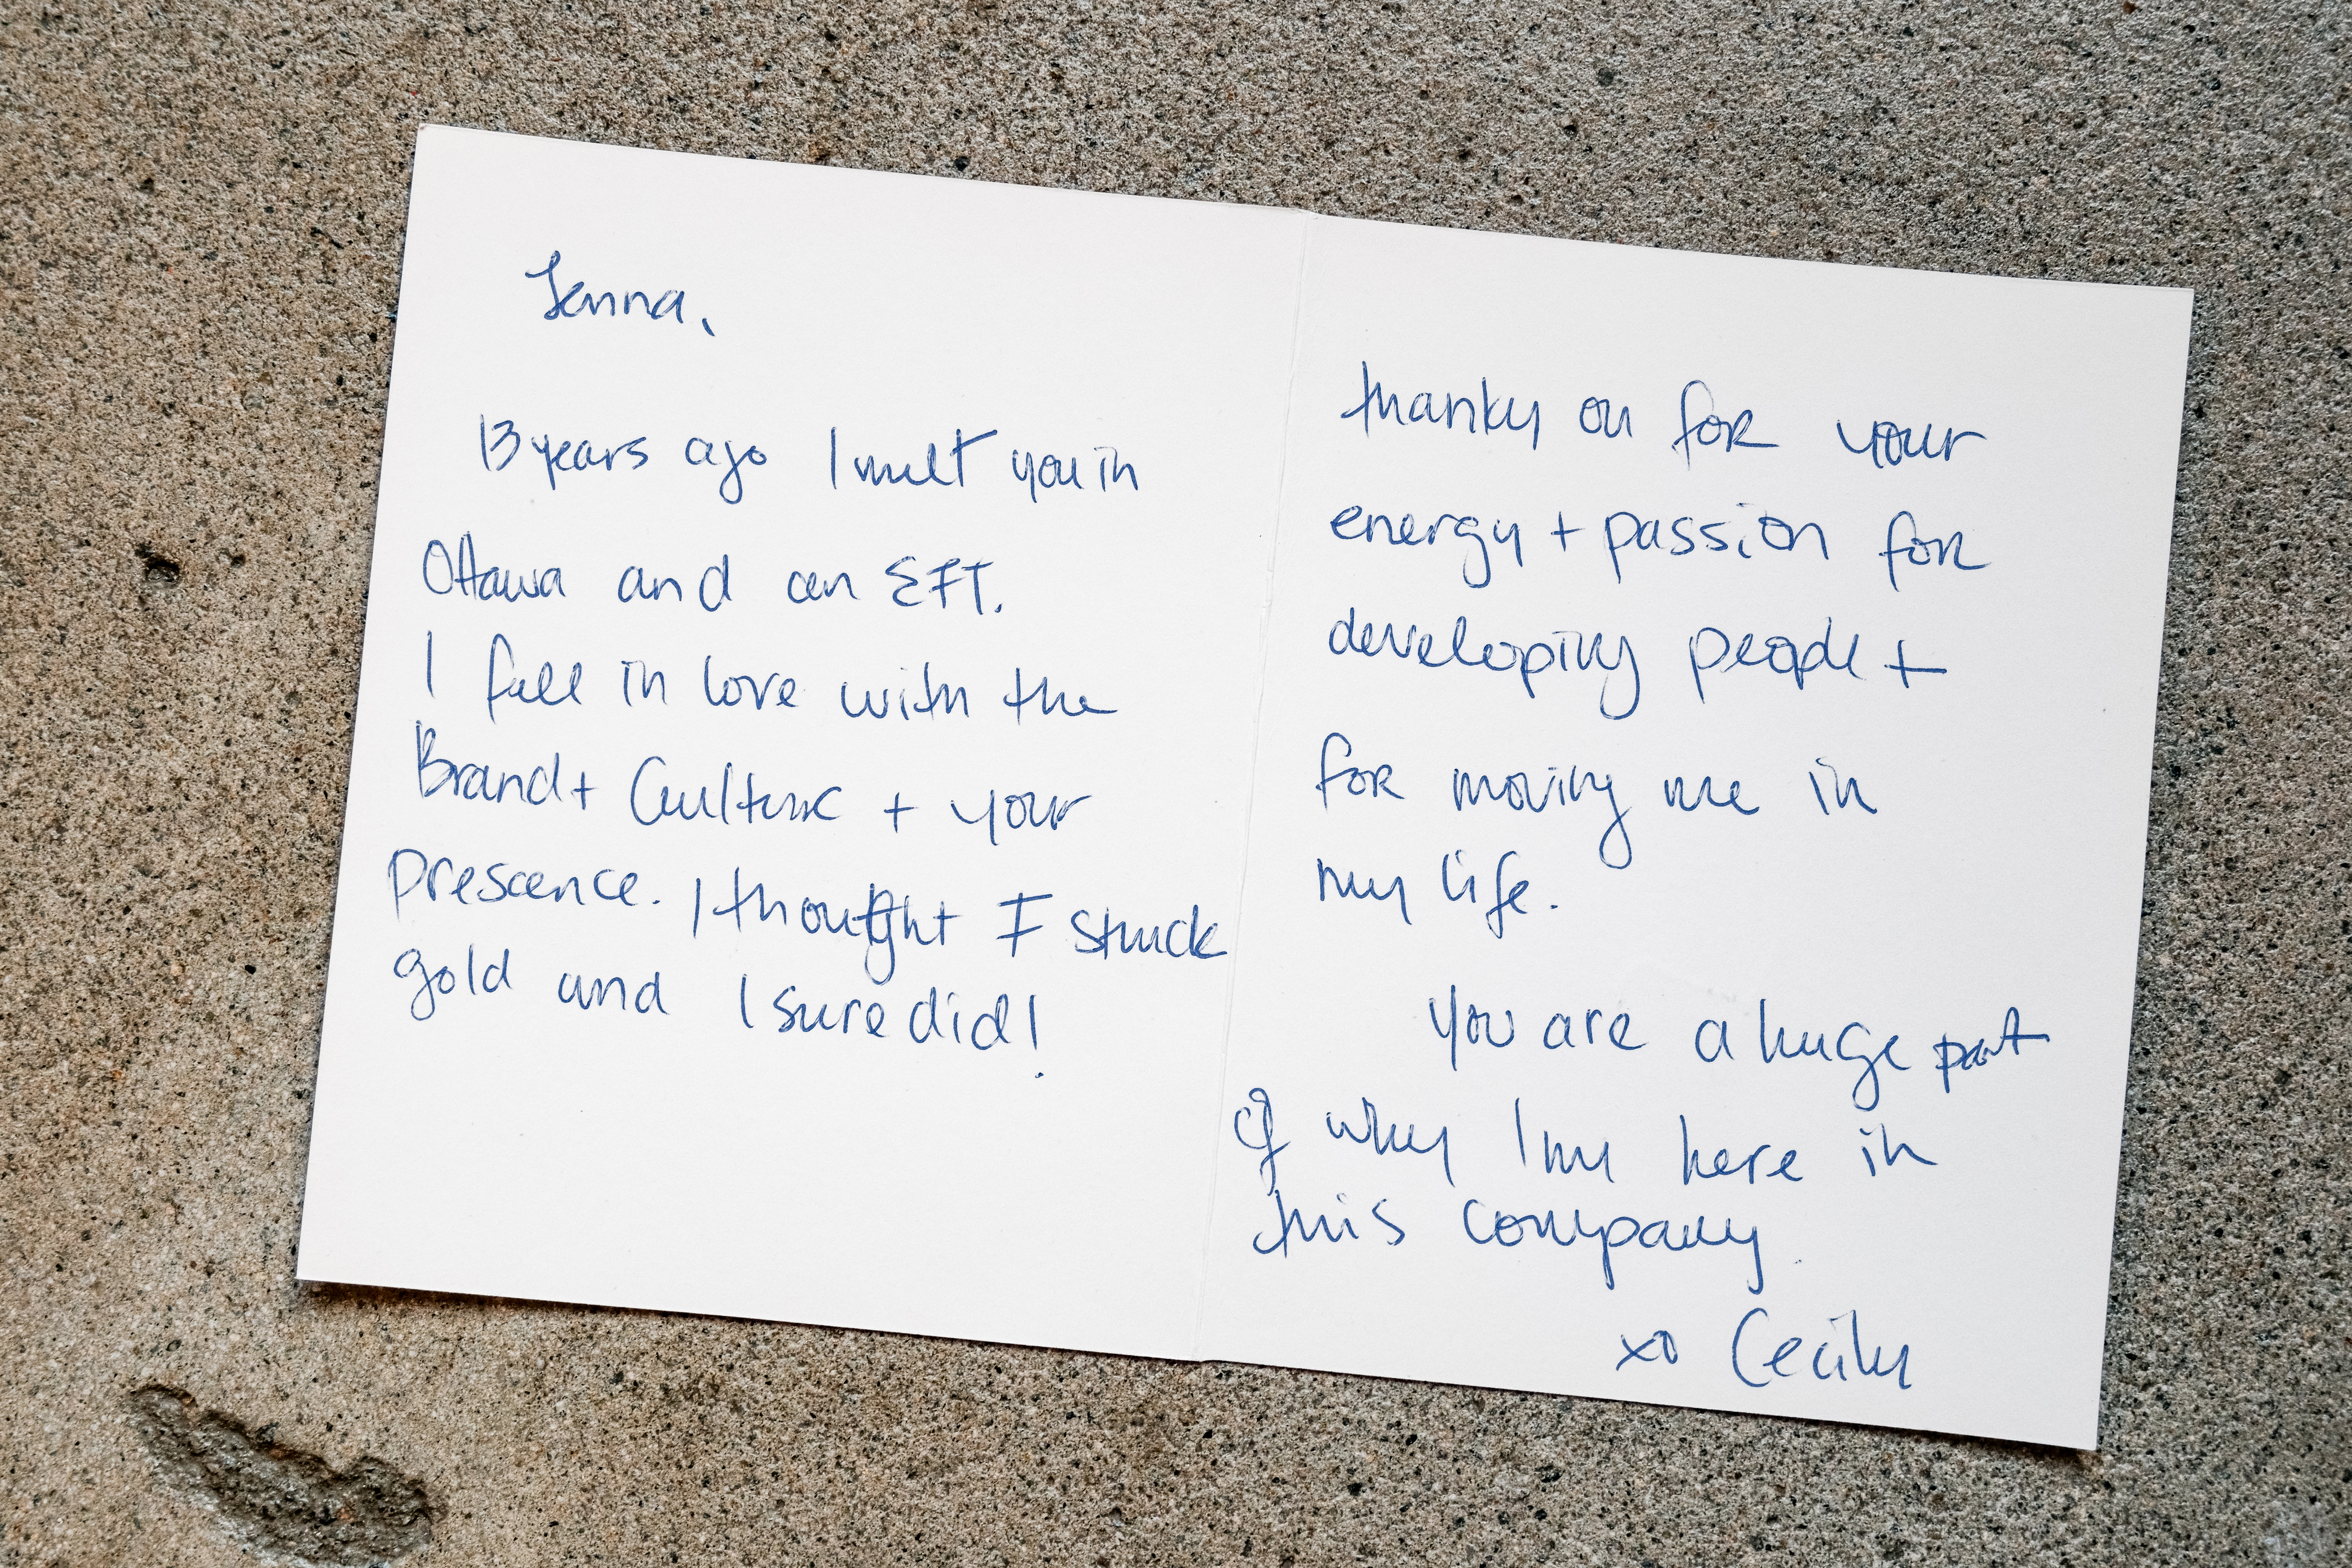 Jenna,
13 years ago I met you in
Ottawa and an EFT.
I fell in love with the
Brand + Culture + your
prescence. I thought I struck
gold and I sure did!
thank you for your
energy + passion for
developing people +
for moving me in
my life.
You are a huge part
of why I'm here in
this company.
xo Cecily